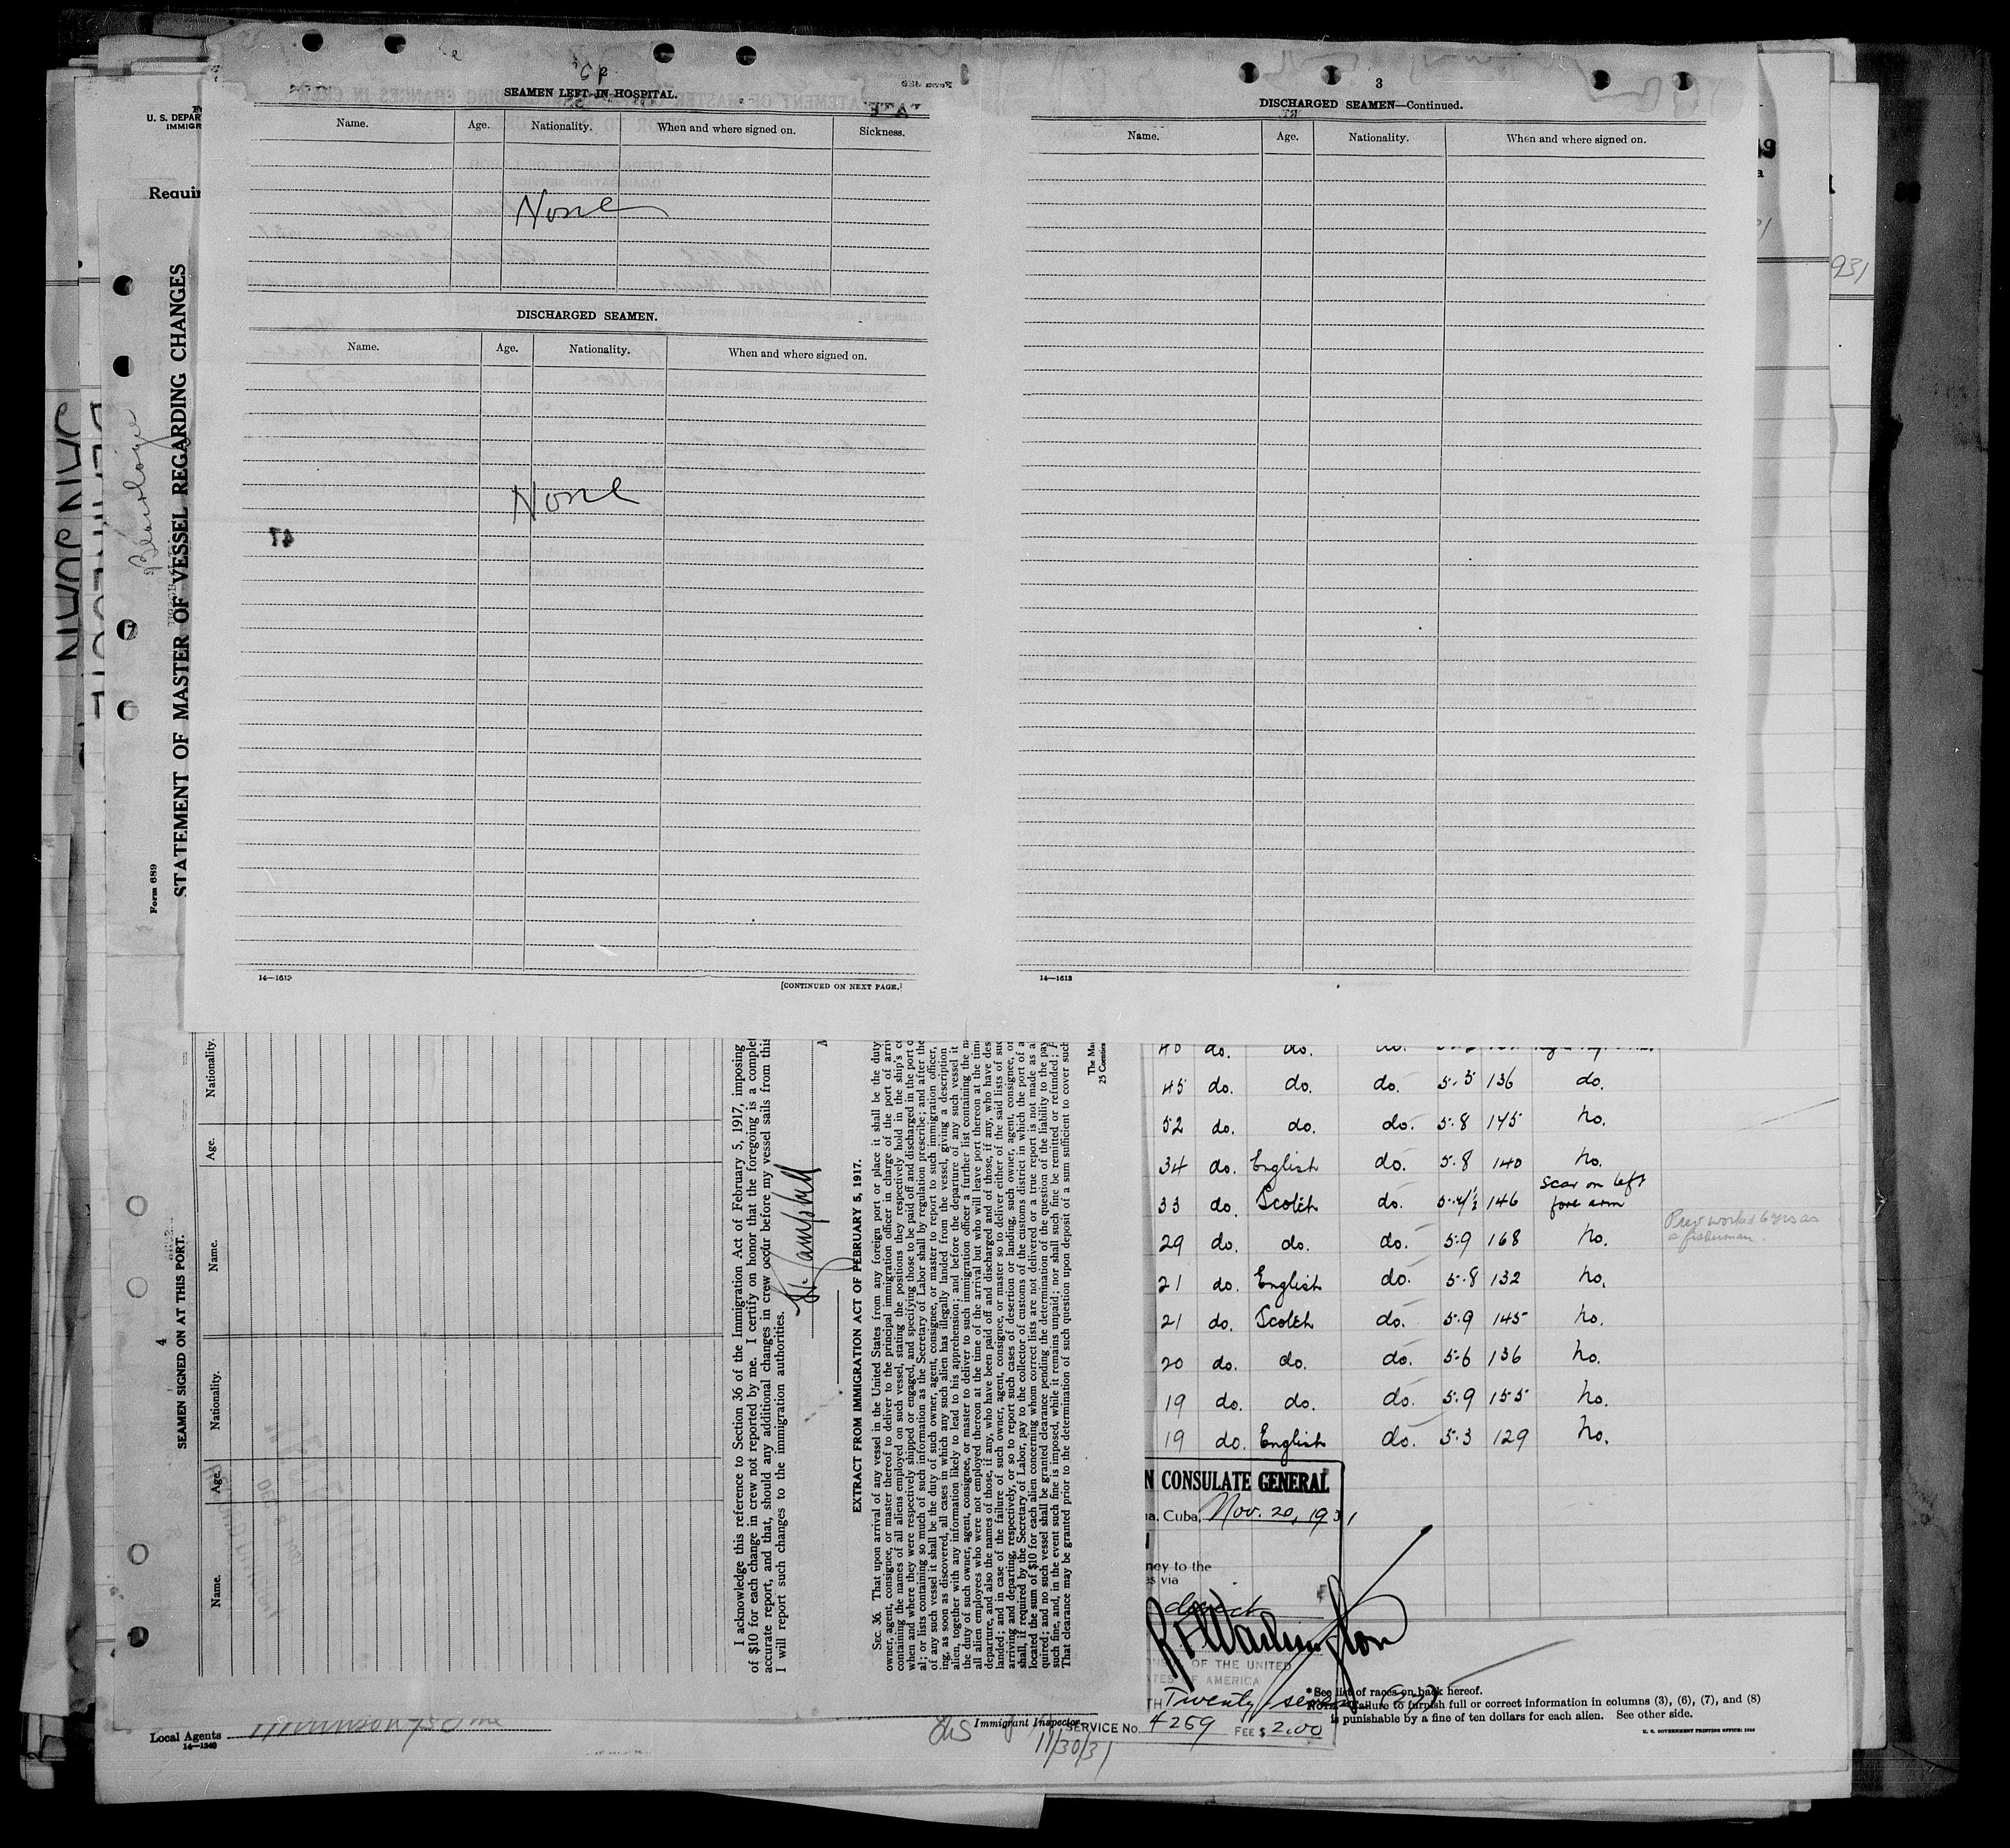 SEAMEN LEFT IN HOSPITAL.
Name. Age. Nationality. When and where signed on. Sickness.
None
DISCHARGED SEAMEN.
Name. Age. Nationality. When and where signed on.
None
47
14—1613
[CONTINUED ON NEXT PAGE.]
3
DISCHARGED SEAMEN—Continued.
Name. Age. Nationality. When and where signed on.
14—1613
U. S. DEPAR
IMMIGR
Requir
Form 689
STATEMENT OF MASTER OF VESSEL REGARDING CHANGES
931
4
SEAMEN SIGNED ON AT THIS PORT.
Name. Age. Nationality. Name. Age. Nationality.
I acknowledge this reference to Section 36 of the Immigration Act of February 5, 1917, imposing
of $10 for each change in crew not reported by me. I certify on honor that the foregoing is a complet
accurate report, and that, should any additional changes in crew occur before my vessel sails from this
I will report such changes to the immigration authorities.
Campbell
EXTRACT FROM IMMIGRATION ACT OF FEBRUARY 5, 1917.
SEC. 36. That upon arrival of any vessel in the United States from any foreign port or place it shall be the duty
owner, agent, consignee, or master thereof to deliver to the principal immigration officer in charge of the port of arri
containing the names of all aliens employed on such vessel, stating the positions they respectively hold in the ship's co
when and where they were respectively shipped or engaged, and specifying those to be paid off and discharged in the port o
al; or lists containing so much of such information as the Secretary of Labor shall by regulation prescribe; and after the
of any such vessel it shall be the duty of such owner, agent, consignee, or master to report to such immigration officer,
ing, as soon as discovered, all cases in which any such alien has illegally landed from the vessel, giving a description
alien, together with any information likely to lead to his apprehension; and before the departure of any such vessel it
the duty of such owner, agent, consignee, or master to deliver to such immigration officer a further list containing the n
all alien employees who were not employed thereon at the time of the arrival but who will leave port thereon at the tim
departure, and also the names of those, if any, who have been paid off and discharged and of those, if any, who have des
landed; and in case of the failure of such owner, agent, consignee, or master so to deliver either of the said lists of suc
arriving and departing, respectively, or so to report such cases of desertion or landing, such owner, agent, consignee, or
shall, if required by the Secretary of Labor, pay to the collector of customs of the customs district in which the port of a
located the sum of $10 for each alien concerning whom correct lists are not delivered or a true report is not made as a
quired; and no such vessel shall be granted clearance pending the determination of the question of the liability to the pay
such fine, and, in the event such fine is imposed, while it remains unpaid; nor shall such fine be remitted or refunded; P
That clearance may be granted prior to the determination of such question upon deposit of a sum sufficient to cover such
The Ma
25 Coenties
45 do. do. do. 5.5 136 do.
52 do. do. do. 5.8 145 no.
34 do. English do. 5.8 140 no.
33 do. Scotch do. 5.4½ 146 Scar on left fore arm
29 do. do. do. 5.9 168 no.
Prev worked 6 yrs as
a fisherman.
21 do. English do. 5.8 132 no.
21 do. Scotch do. 5.9 145 no.
20 do. do. do. 5.6 136 no.
19 do. do. do. 5.9 155 no.
19 do. English do. 5.3 129 no.
N CONSULATE GENERAL
a, Cuba, Nov. 20, 1931
ney to the
es via
direct
R F Washington
OF THE UNITED
TES OF AMERICA
Twenty seven (27)
SERVICE No. 4259 FEE $ 2.00
*See list of races on back hereof.
NOTE.—Failure to furnish full or correct information in columns (3), (6), (7), and (8)
is punishable by a fine of ten dollars for each alien. See other side.
U. S. GOVERNMENT PRINTING OFFICE: 1930
Local Agents
14—1240
Immigrant Inspector
11/30/31